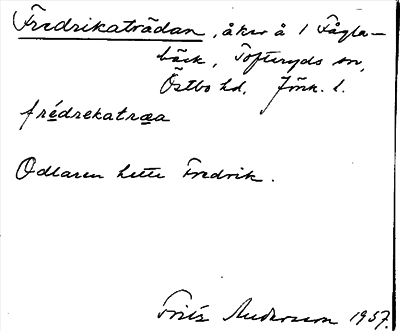 Fredrikaträdan, åker å 1 Fågla-
bäck, Tofteryds sn,
Östbo hd, Jönk. l.
frédrekatræa
Odlaren hette Fredrik.
Fritz Andersson 1957.